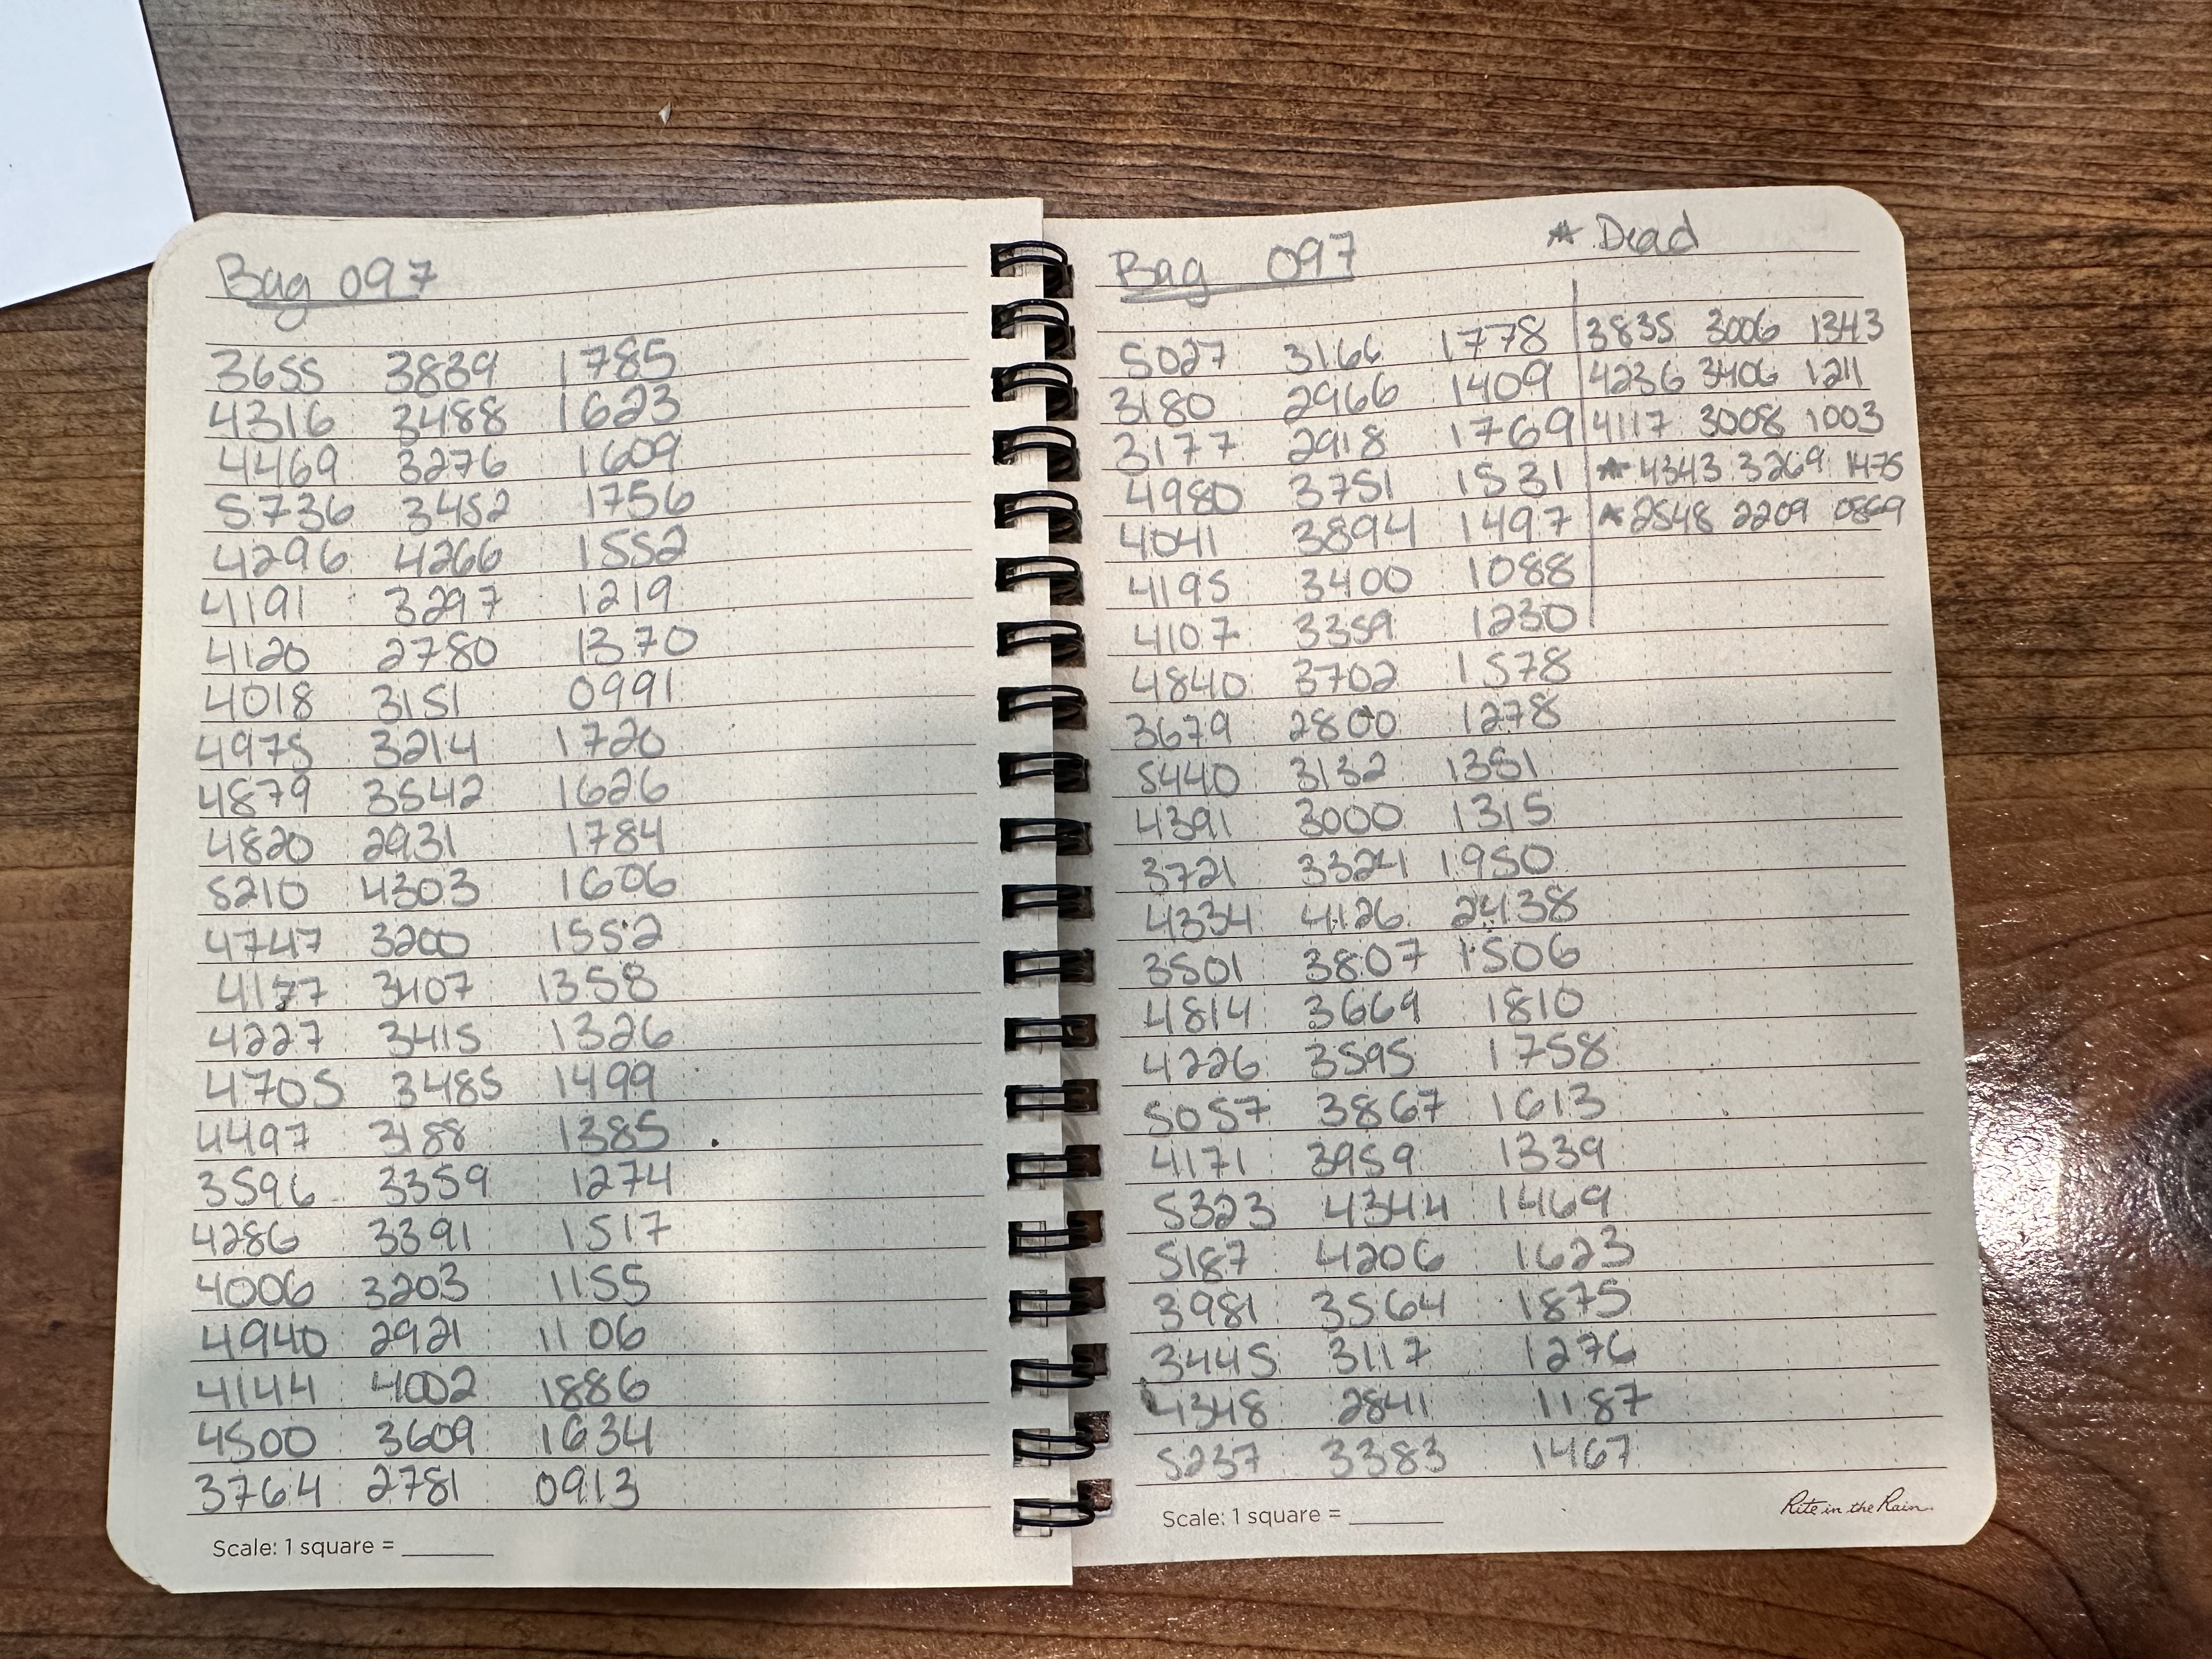 Bag 097
3655 3839 1785
4316 3488 1623
4469 3276 1609
5736 3452 1756
4296 4266 1552
4191 3297 1219
4120 2780 1370
4018 3151 0991
4975 3214 1720
4879 3542 1626
4820 2931 1784
5210 4303 1606
4747 3200 1552
4177 3407 1358
4227 3415 1326
4705 3485 1499
4497 3188 1385
3596 3359 1274
4286 3391 1517
4006 3203 1155
4940 2921 1106
4144 4002 1886
4500 3609 1634
3764 2781 0913
Scale: 1 square = ______
Bag 097
5027 3166 1778
3180 2966 1409
3177 2918 1769
4980 3751 1531
4041 3894 1497
4195 3400 1088
4107 3359 1230
4840 3702 1578
3679 2800 1278
5440 3132 1351
4391 3000 1315
3721 3324 1950
4334 4126 2438
3501 3807 1506
4814 3669 1810
4226 3595 1758
5057 3867 1613
4171 3959 1339
5323 4344 1469
5187 4206 1623
3981 3564 1875
3445 3117 1276
4348 2841 1187
5237 3383 1467
★ Dead
3835 3006 1343
4236 3406 1211
4117 3008 1003
★ 4343 3269 1475
★ 2548 2209
Scale: 1 square = ______
Rite in the Rain